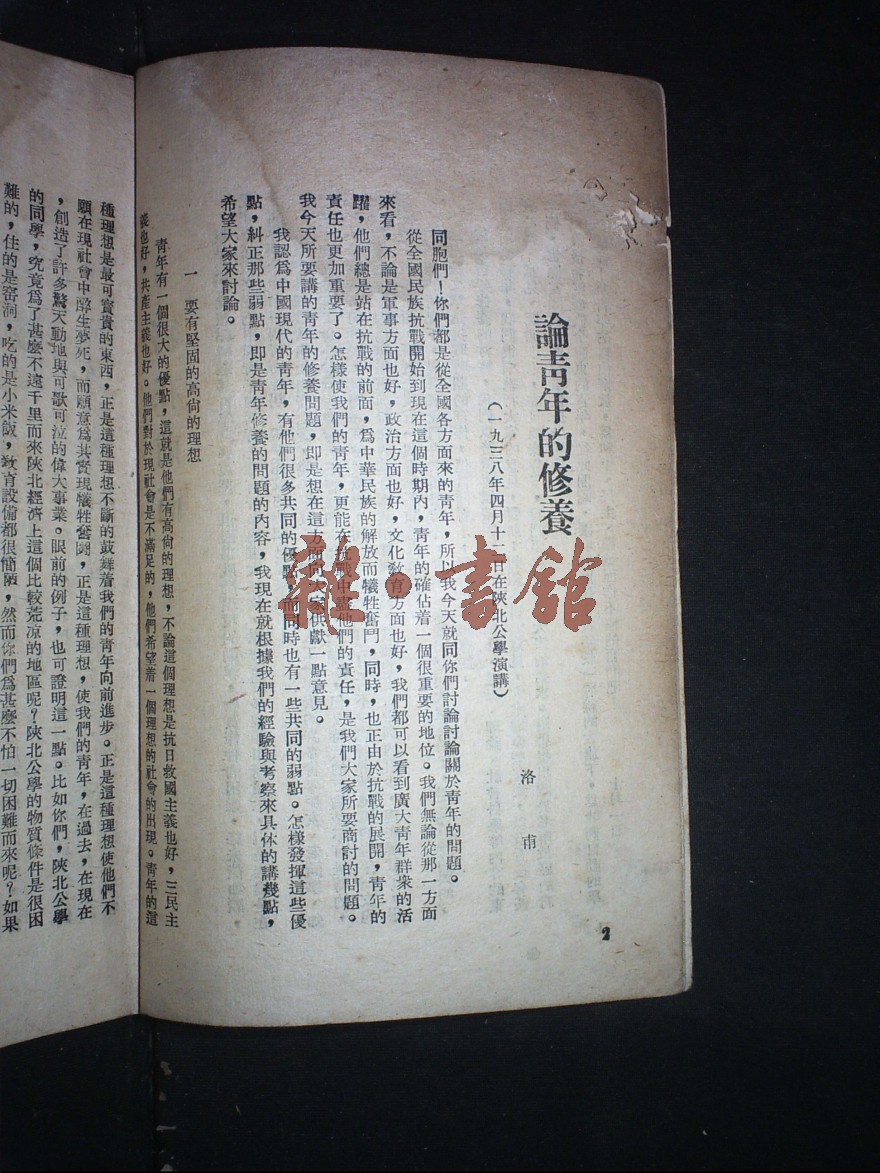 論靑年的修養
(一九三八年四月十二日在陝北公學演講)
洛甫
同胞們!你們都是從全國各方面來的靑年,所以我今天就同你們討論討論關於靑年的問題。
從全國民族抗戰開始到現在這個時期內,靑年的確佔着一個很重要的地位。我們無論從那一方面
來看,不論是軍事方面也好,政治方面也好,文化敎育方面也好,我們都可以看到廣大靑年群衆的活
躍,他們總是站在抗戰的前面,爲中華民族的解放而犧牲奮鬥,同時,也正由於抗戰的展開,靑年的
責任也更加重要了。怎樣使我們的靑年,更能在抗戰中盡他們的責任,是我們大家所要商討的問題。
我今天所要講的靑年的修養問題,即是想在這方面向大家供獻一點意見。
我認爲中國現代的靑年,有他們很多共同的優點,而同時也有一些共同的弱點。怎樣發揮這些優
點,糾正那些弱點,即是靑年修養的問題的內容,我現在就根據我們的經驗與考察來具体的講幾點,
希望大家來討論。
一 要有堅固的高尙的理想
靑年有一個很大的優點,這就是他們有高尙的理想,不論這個理想是抗日救國主義也好,三民主
義也好,共產主義也好。他們對於現社會是不滿足的,他們希望着一個理想的社會的出現。靑年的這
種理想是最可寶貴的東西,正是這種理想不斷的鼓舞着我們的靑年向前進步。正是這種理想使他們不
願在現社會中醉生夢死,而願意爲其實現犧牲奮鬥,正是這種理想,使我們的靑年,在過去,在現在
,創造了許多驚天動地與可歌可泣的偉大事業。眼前的例子,也可證明這一點。比如你們,陝北公學
的同學,究竟爲了甚麽不遠千里而來陝北經濟上這個比較荒凉的地區呢?陝北公學的物質條件是很困
難的,住的是窑洞,吃的是小米飯,敎育設備都很簡陋,然而你們爲甚麽不怕一切困難而來呢?如果
2
龍·書館